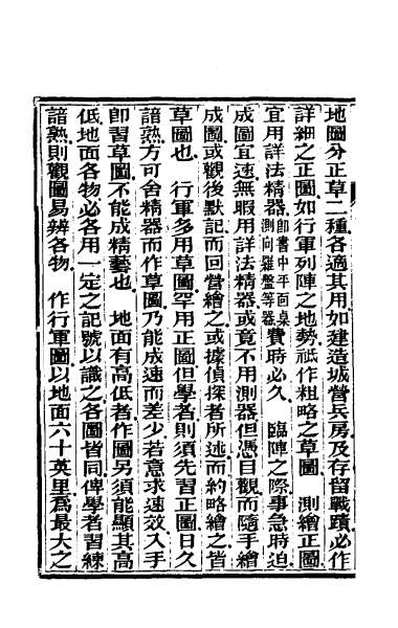 地圖分正草二種各適其用如建造城營兵房及存留戰蹟必作
詳細之正圖如行軍列陣之地勢祗作粗略之草圖　測繪正圖
宜用詳法精器即書中平面桌測向羅盤等器費時必久　臨陣之際事急時迫
成圖宜速無暇用詳法精器或竟不用測器但憑目觀而隨手繪
成圖或觀後默記而回營繪之或據偵探者所述而約略繪之皆
草圖也　行軍多用草圖罕用正圖但學者則須先習正圖日久
諳熟方可舍精器而作草圖乃能成速而差少若意求速效入手
即習草圖不能成精藝也　地面有高低者作圖另須能顯其高
低地面各物必各用一定之記號以識之各圖皆同俾學者習練
諳熟則觀圖易辨各物　作行軍圖以地面六十英里爲最大之